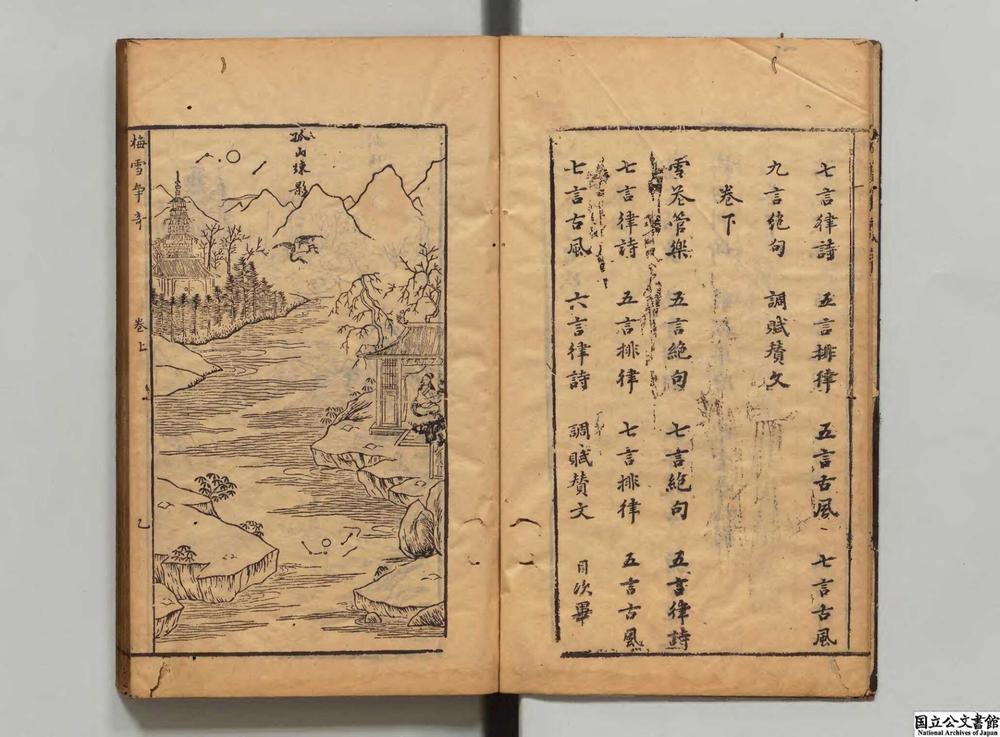 七言律詩 五言排律 五言古風 七言古風
九言絶句 調賦賛文
卷下
雪苍管樂 五言絶句 七言絶句 五言律詩
七言律詩 五言排律 七言排律 五言古風
七言古風 六言律詩 調賦賛文 目次畢
孤山疎影
梅雪争奇 卷上 乙
国立公文書館
National Archives of Japan